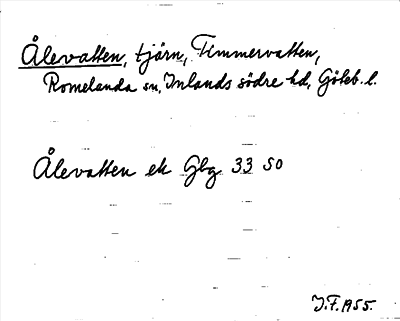 Ålevatten, tjärn, Timmervatten,
Romelanda sn, Inlands södre hd, Göteb. l.
Ålevatten ek Gbg 33 SO
J.F. 1955.